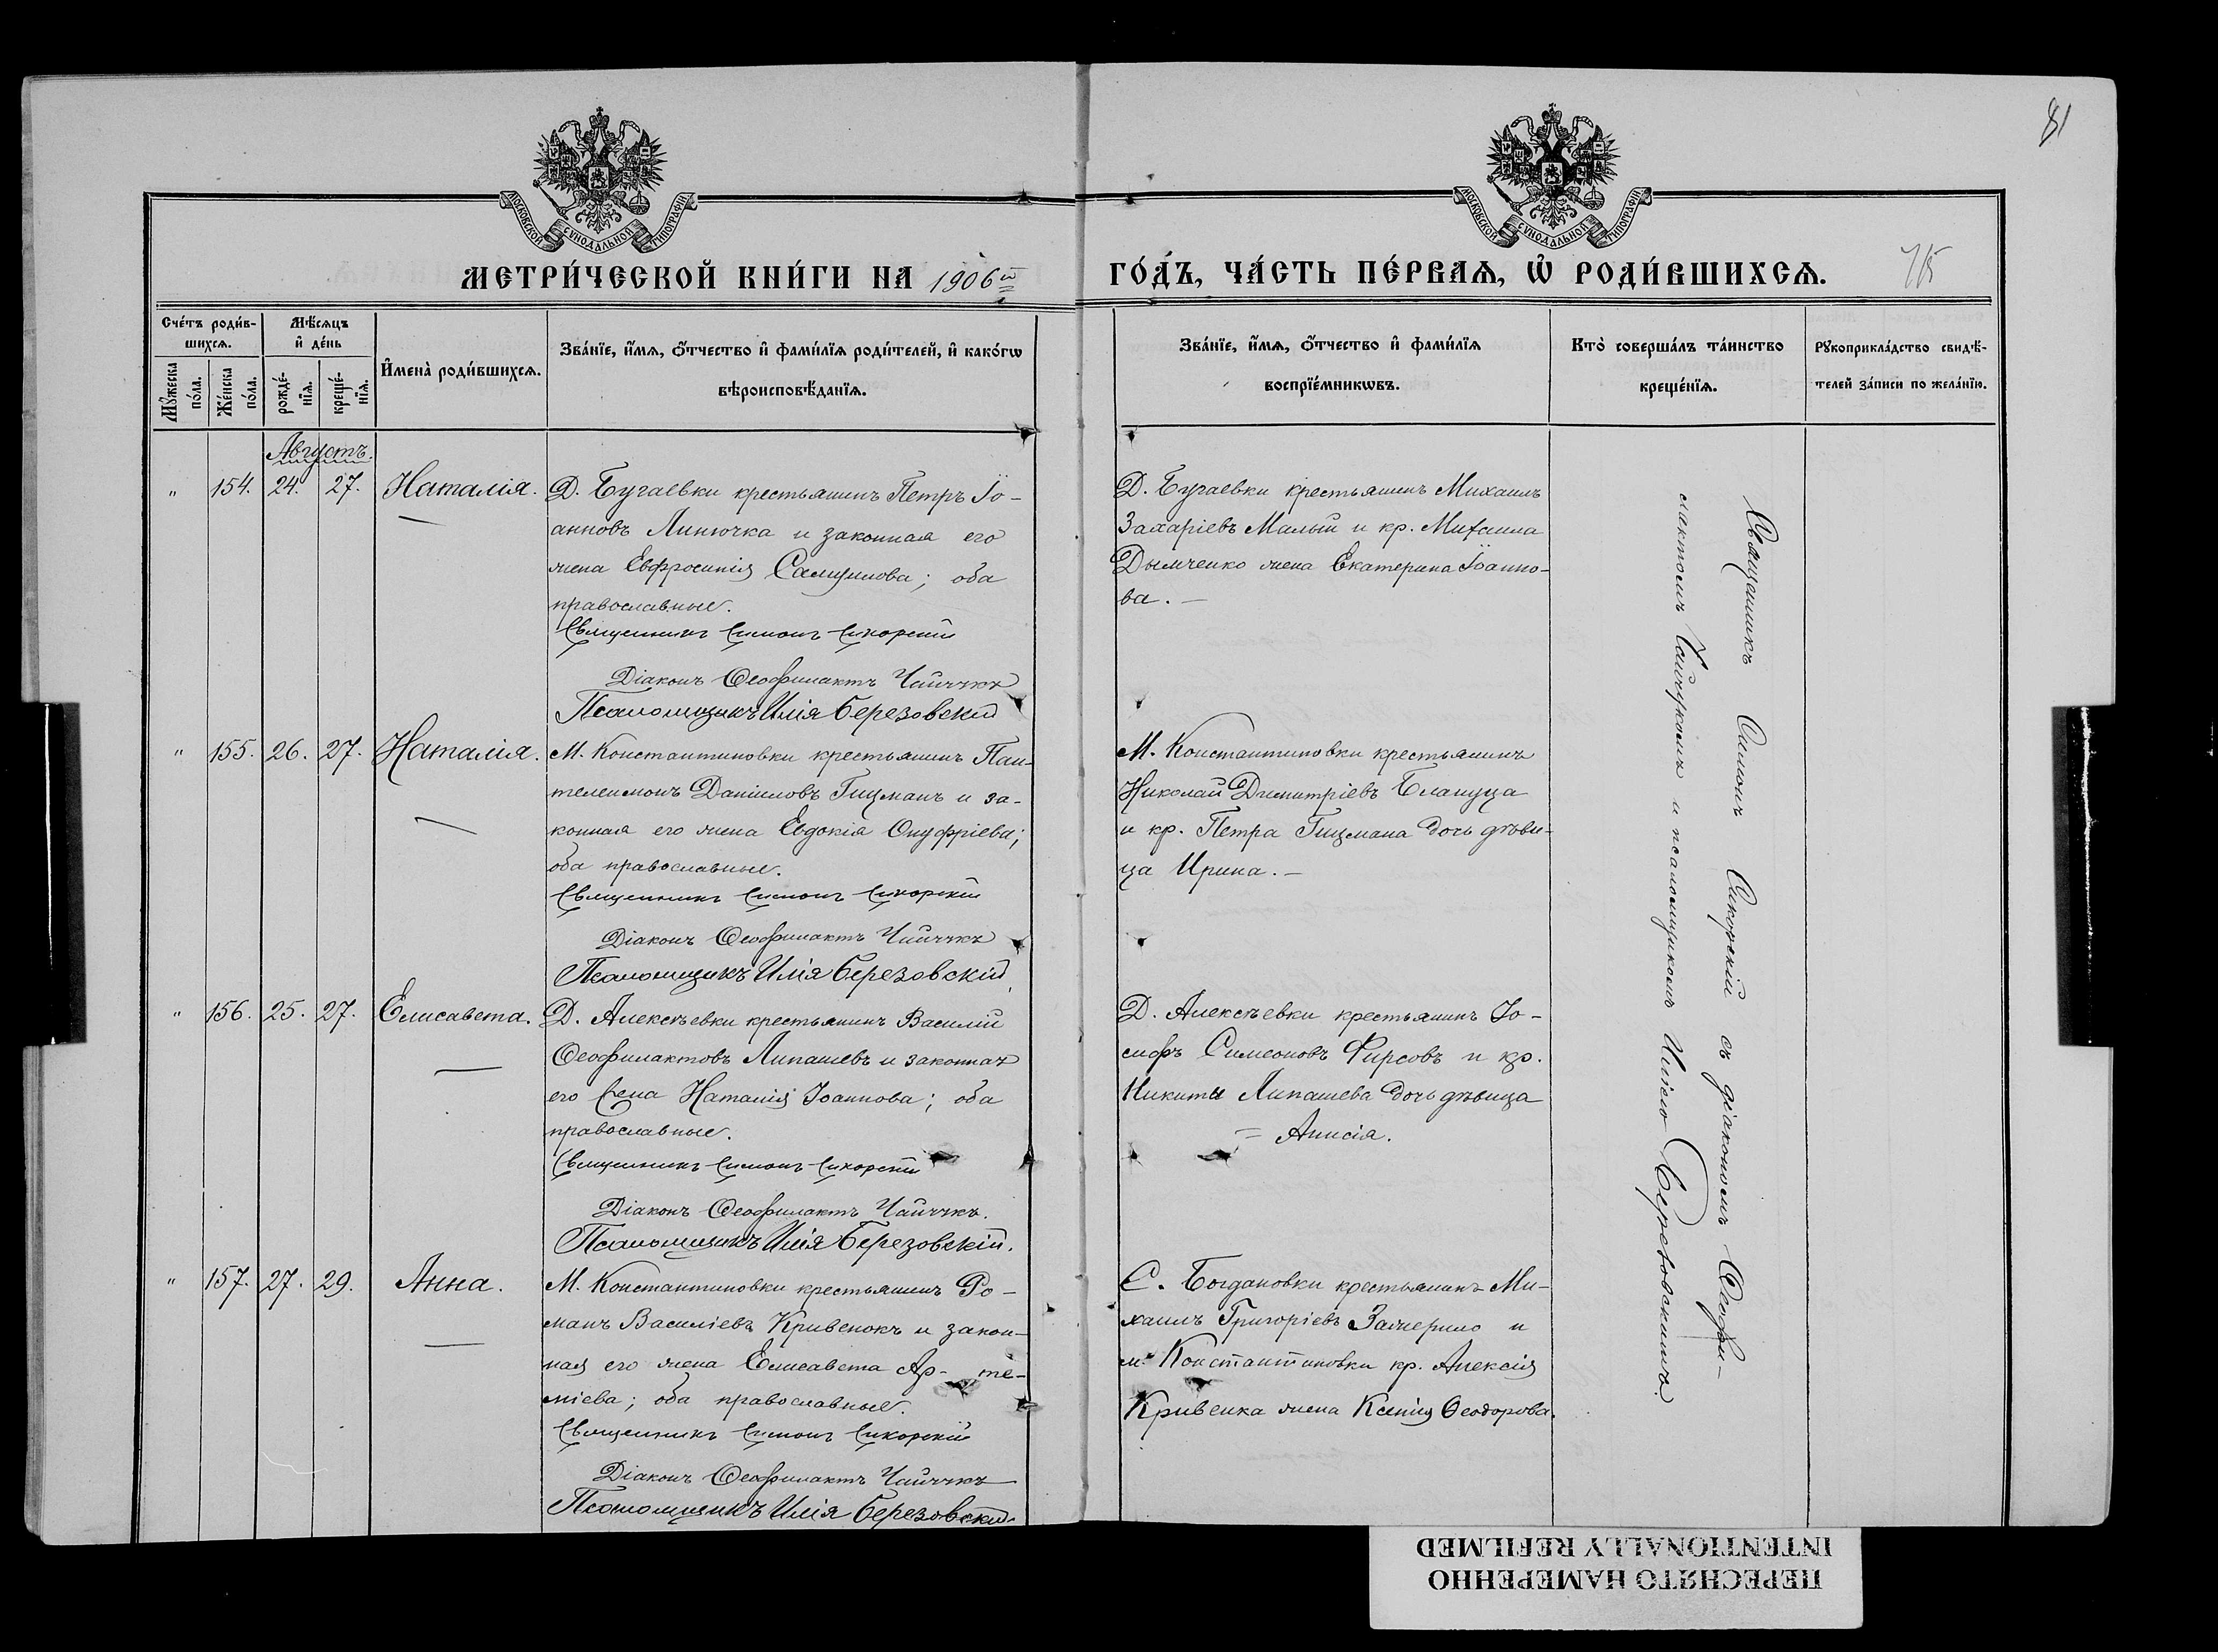 81
МОСКОВСКОЙ СѴНОДАЛЬНОЙ ТИПОГРАФІИ
МОСКОВСКОЙ СѴНОДАЛЬНОЙ ТИПОГРАФІИ
МЕТРИ́ЧЕСКОЙ КНИ́ГИ НА 1906й ГО́ДЪ, ЧА́СТЬ ПЕ́РВАѦ, Ѽ РОДИ́ВШИХСѦ.
Сче́тъ роди́в-
шихсѧ.
Мꙋ́жеска по́ла.
Же́нска по́ла.
Мѣ́сѧцъ
и҆ де́нь
рожде́-
нїѧ.
креще́-
нїѧ.
И҆мена̀ роди́вшихсѧ.
Зва́нїе, и҆́мѧ, ѻ҆́тчество и҆ фами́лїѧ роди́телей, и҆ како́гѡ
вѣроисповѣ́данїѧ.
Зва́нїе, и҆́мѧ, ѻ҆́тчество и҆ фами́лїѧ
воспрїе́мникѡвъ.
Кто̀ соверша́лъ та́инство
креще́нїѧ.
Рꙋкоприкла́дство свидѣ́-
телей за́писи по жела́нїю.
Августъ.
" 154. 24. 27. Наталія.
Д. Бугаевки крестьянинъ Петръ Іо-
анновъ Линючка и законная его
жена Евфросинія Самуилова; оба
православные.
Священникъ Симонъ Сикорскій
Діаконъ Ѳеофилактъ Чайчукъ
Псаломщикъ Илія Березовскій
Д. Бугаевки крестьянинъ Михаилъ
Захаріевъ Малый и кр. Михаила
Дымченко жена Екатерина Іоанно-
ва. —
" 155. 26. 27. Наталія.
М. Константиновки крестьянинъ Пан-
телеимонъ Даніиловъ Гицманъ и за-
конная его жена Евдокія Онуфріева;
оба православные.
Священникъ Симонъ Сикорскій
Діаконъ Ѳеофилактъ Чайчукъ
Псаломщикъ Илія Березовскій
М. Константиновки крестьянинъ
Николай Димитріевъ Блануца
и кр. Петра Гицмана дочь дѣви-
ца Ирина. —
" 156. 25. 27. Елисавета.
Д. Алексѣевки крестьянинъ Василій
Ѳеофилактовъ Липашевъ и законная
его жена Наталія Іоаннова; оба
православные.
Священникъ Симонъ Сикорскій
Діаконъ Ѳеофилактъ Чайчукъ.
Псаломщикъ Илія Березовскій.
Д. Алексѣевки крестьянинъ Іо-
сифъ Симеоновъ Фирсовъ и кр.
Никиты Липашева дочь дѣвица
= Анисія.
" 157. 27. 29. Анна.
М. Константиновки крестьянинъ Ро-
манъ Василіевъ Кривенокъ и закон-
ная его жена Елисавета Ар- те-
міева; оба православные.
Священникъ Симонъ Сикорскій
Діаконъ Ѳеофилактъ Чайчукъ
Псаломщикъ Илія Березовскій.
С. Богдановки крестьянинъ Ми-
хаилъ Григоріевъ и
м. Константиновки кр. Алексія
Кривенка жена Ксенія Ѳеодорова.
Священникъ Симонъ Сикорскій съ діакономъ Ѳеофи-
лактомъ Чайчукомъ и псаломщикомъ Иліею Березовскимъ.
ПЕРЕСНЯТО НАМЕРЕННО
INTENTIONALLY REFILMED